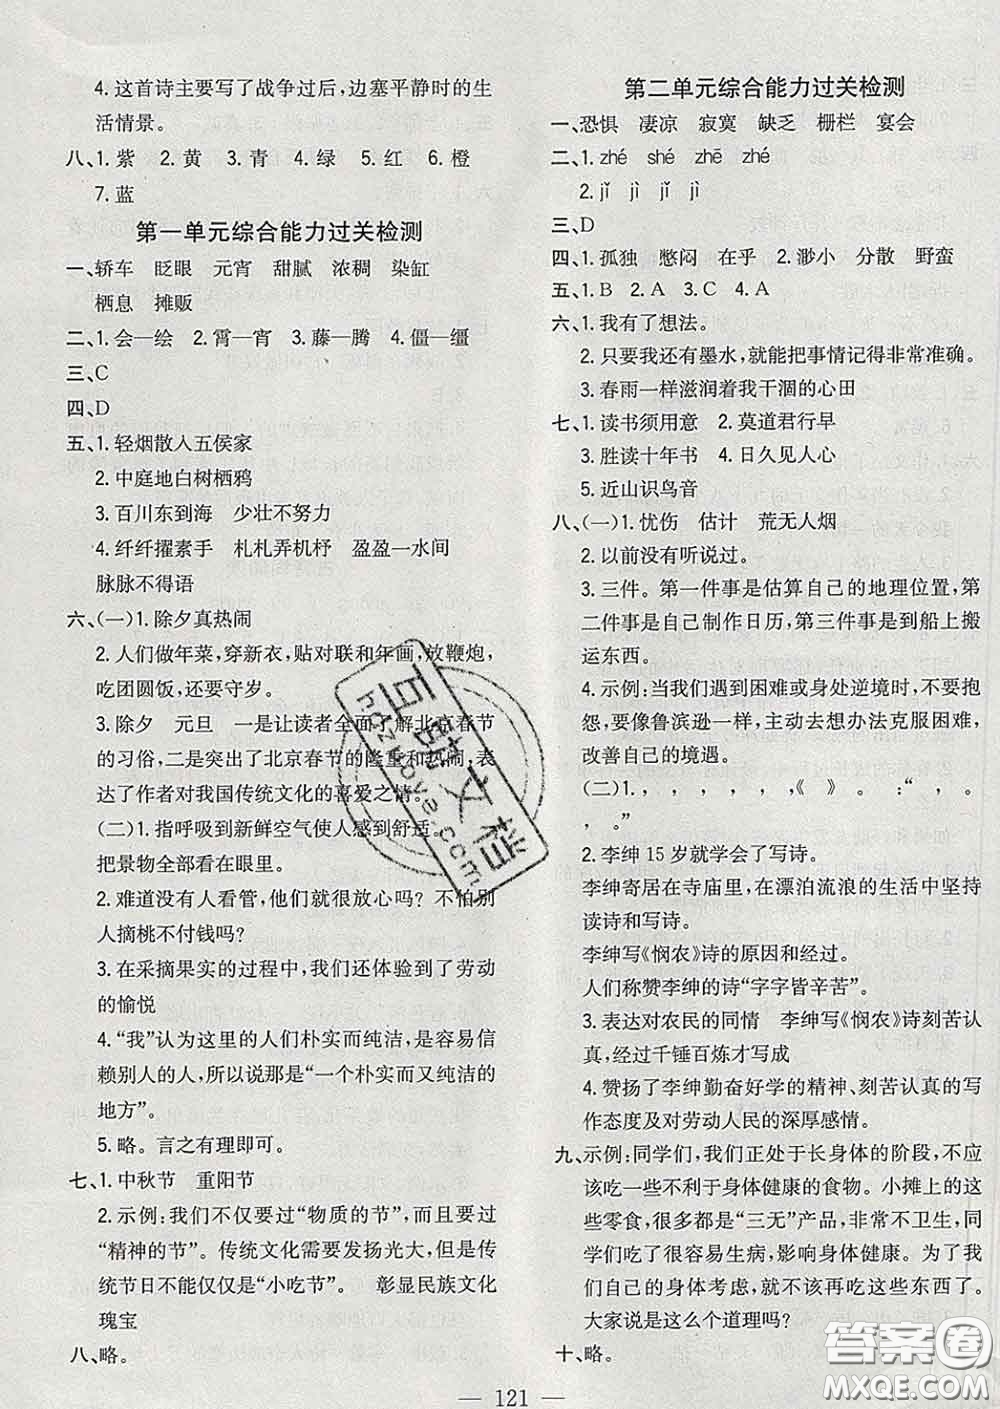 4. 这首诗主要写了战争过后,边塞平静时的生
活情景。
八、1. 紫　2. 黄　3. 青　4. 绿　5. 红　6. 橙
7. 蓝
第一单元综合能力过关检测
一、轿车　眨眼　元宵　甜腻　浓稠　染缸
栖息　摊贩
二、1. 会—绘　2. 霄—宵　3. 藤—腾　4. 僵—缰
三、C
四、D
五、1. 轻烟散入五侯家
2. 中庭地白树栖鸦
3. 百川东到海　少壮不努力
4. 纤纤擢素手　札札弄机杼　盈盈一水间
脉脉不得语
六、(一)1. 除夕真热闹
2. 人们做年菜,穿新衣,贴对联和年画,放鞭炮,
吃团圆饭,还要守岁。
3. 除夕　元旦　一是让读者全面了解北京春节
的习俗,二是突出了北京春节的隆重和热闹,表
达了作者对我国传统文化的喜爱之情。
(二)1. 指呼吸到新鲜空气使人感到舒适。
把景物全部看在眼里。
2. 难道没有人看管,他们就很放心吗?不怕别
人摘桃不付钱吗?
3. 在采摘果实的过程中,我们还体验到了劳动
的愉悦
4. “我”认为这里的人们朴实而纯洁,是容易信
赖别人的人,所以说那是“一个朴实而又纯洁的
地方”。
5. 略。言之有理即可。
七、1. 中秋节　重阳节
2. 示例:我们不仅要过“物质的节”,而且要过
“精神的节”。传统文化需要发扬光大,我们的传
统节日不能仅仅是“小吃节”。　彰显民族文化
瑰宝
八、略。
第二单元综合能力过关检测
一、恐惧　凄凉　寂寞　缺乏　栅栏　宴会
二、1. zhé　shé　zhē　zhé
2. jǐ　jì　jǐ　jì
三、D
四、1. 孤独　憋闷　在乎　2. 渺小　分散　野蛮
五、1. B　2. A　3. C　4. A
六、1. 我有了想法。
2. 只要我还有墨水,就能把事情记得非常准确。
3. 春雨一样滋润着我干涸的心田
七、1. 读书须用意　2. 莫道君行早
3. 胜读十年书　4. 日久见人心
5. 近山识鸟音
八、(一)1. 忧伤　估计　荒无人烟
2. 以前没有听说过。
3. 三件。第一件事是估算自己的地理位置,第
二件事是自己制作日历,第三件事是到船上搬
运东西。
4. 示例:当我们遇到困难或身处逆境时,不要抱
怨,要像鲁滨逊一样,主动去想办法克服困难,
改善自己的境遇。
(二)1. ，　，　，　，　，《　》　。　：　“　，　。
，　。”
2. 李绅 15 岁就学会了写诗。
李绅寄居在寺庙里,在漂泊流浪的生活中坚持
读诗和写诗。
李绅写《悯农》诗的原因和经过。
人们称赞李绅的诗“字字皆辛苦”。
3. 表达对农民的同情　李绅写《悯农》诗刻苦认
真,历经千锤百炼才写成
4. 赞扬了李绅勤奋好学的精神、刻苦认真的写
作态度及对劳动人民的深厚感情。
九、示例:同学们,我们正处于长身体的阶段,不应
该吃一些不利于身体健康的食物。小摊上的这
些零食,很多都是“三无”产品,非常不卫生,同
学们吃了很容易生病,影响身体健康。为了我
们自己的身体考虑,就不该再吃这些东西了。
大家说是这么个道理吗?
十、略。
— 121 —
百航文档
hdzwove.com
答案圈
MXQE.COM